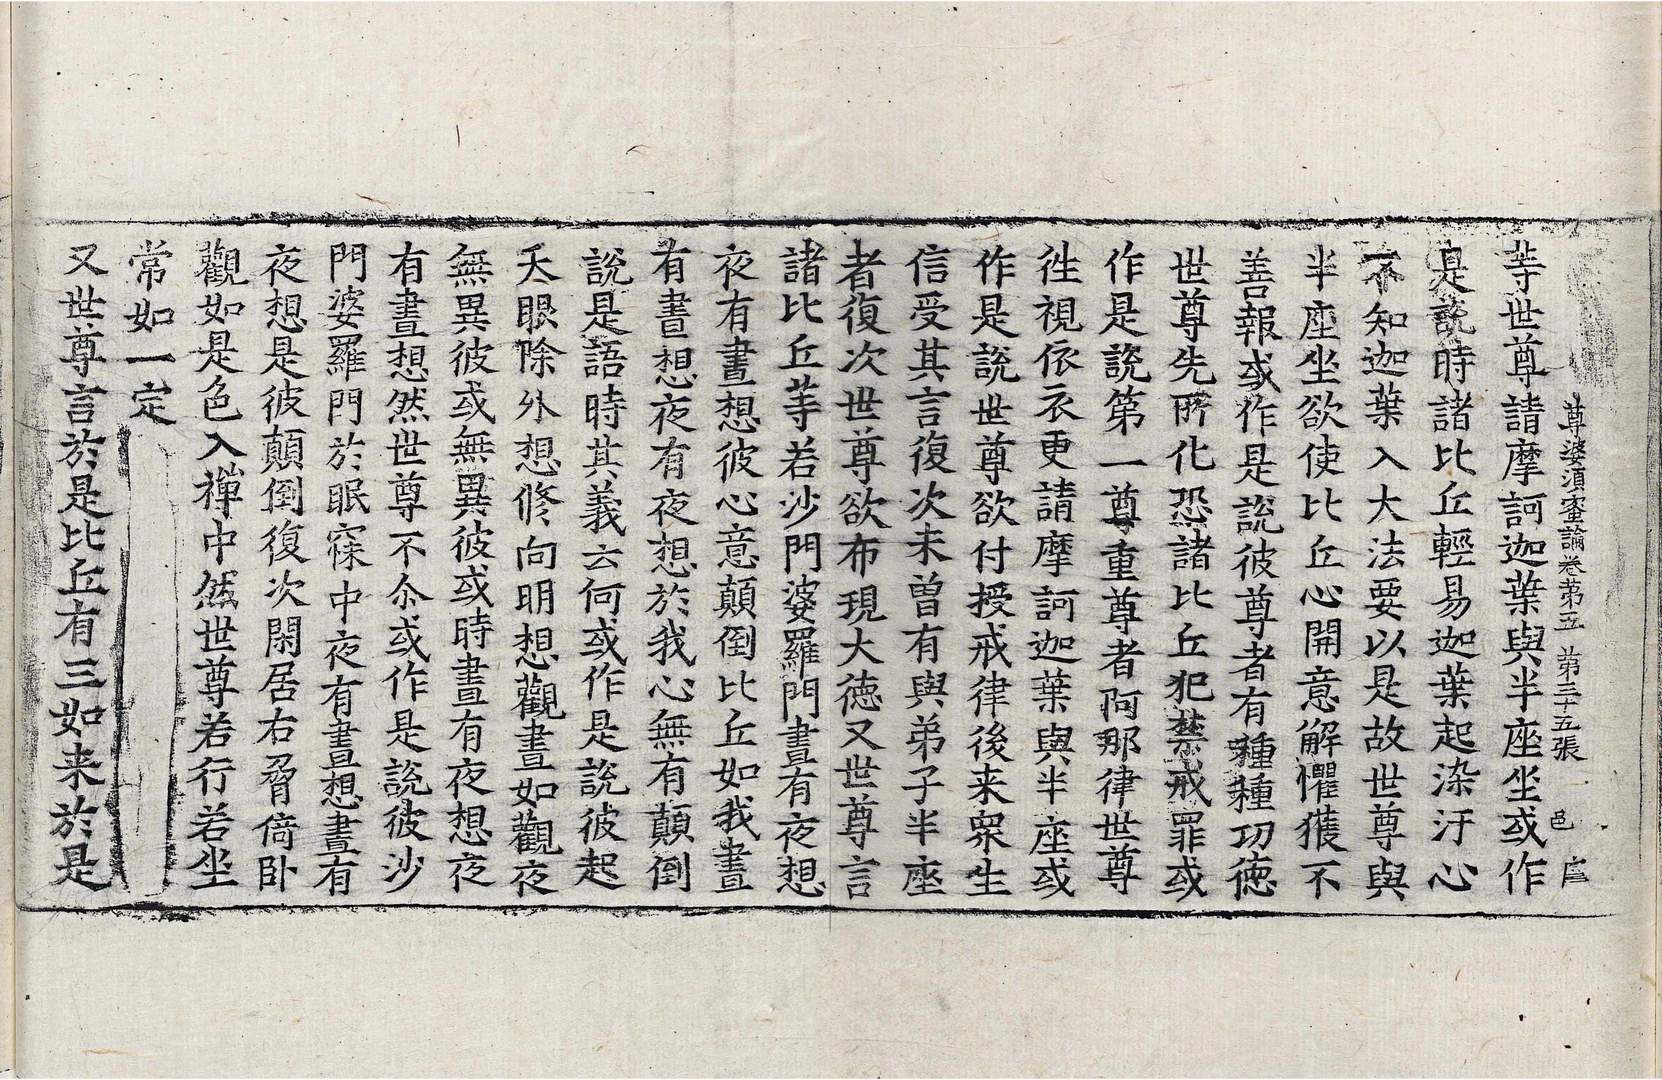 尊婆須蜜論卷苐五　苐三十五張　邑
䓁世尊請摩訶迦葉與半座坐或作
是說時諸比丘輕易迦葉起染汙心
不知迦葉入大法要以是故世尊與
半座坐欲使比丘心開意解懼獲不
善報或作是説彼尊者有種種㓛徳
世尊先所化恐諸比丘犯禁戒罪或
作是説第一尊重尊者阿那律世尊
徃視依衣更請摩訶迦葉與半座或
作是説世尊欲付授戒律後来衆生
信受其言復次未曽有與弟子半座
者復次世尊欲布現大徳又世尊言
諸比丘䓁若沙門婆羅門晝有夜想
夜有晝想彼心意顛倒比丘如我晝
有晝想夜有夜想於我心無有顛倒
說是語時其義云何或作是説彼起
天眼除外想修向明想觀晝如觀夜
無異彼或無異彼或時晝有夜想夜
有晝想然世尊不尒或作是説彼沙
門婆羅門於眠寐中夜有晝想晝有
夜想是彼顛倒復次閑居右脅倚卧
觀如是色入禪中然世尊若行若坐
常如一定
又世尊言於是比丘有三如来於是